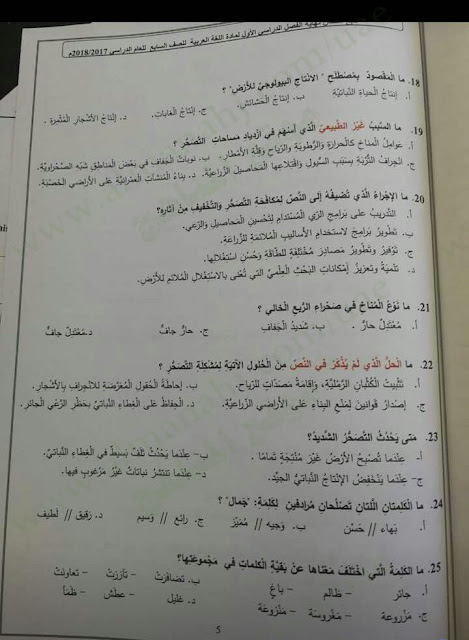 نهاية الفصل الدراسي الأول لمادة اللغة العربية للصف السابع للعام الدراسي 2018/2017م
18. ما المقصودُ بمصطلحِ " الانتاج البيولوجيّ للأرضِ" ؟
أ. إنتاجُ الحياةِ النباتيَّةِ ب. إنتاجُ الحشائشِ. ج. إنتاجُ الغاباتِ. د. إنتاجُ الأشجارِ المُثمِرةِ .
19. ما السَّببُ غَيْرَ الطَّبيعيِّ الَّذي أسْهَمَ في ازديادِ مساحاتِ التَّصَحُّرِ ؟
أ. عواملُ المناخِ كالحرارةِ والرُّطوبةِ والرِّياحِ وقِلَّةِ الأمطارِ. ب. نوباتُ الجفافِ في بَعْضِ المناطقِ شبْهِ الصَّحْراويَّةِ.
ج. انجرافُ التُّرْبةِ بِسَبَبِ السُّيولِ واقْتِلاعِها المَحاصيلَ الزِّراعيَّةَ. د. بناءُ المُنشآتِ العمرانيَّةِ على الأراضي الخَصْبَةِ.
20. ما الإجراءُ الَّذي تُضيفُهُ إلى النَّصِّ لِمُكافَحَةِ التَّصَحُّرِ والتَّخْفيفِ مِنْ آثارِهِ؟
أ. التَّدريبُ على بَرامِجِ الرَّيِّ المُسْتدامِ لِتَحْسينِ المَحاصيلِ والرَّعي.
ب. تطْويرُ بَرامِجَ لاستخدامِ الأساليبِ المُلائمَةِ للزِّراعَةِ.
ج. تَوْفيرُ وتَطْويرُ مَصادِرَ مُخْتَلِفَةٍ لِلطَّاقَةِ وحُسْنِ استِغلالِها.
د. تَنْمِيَةُ وتَعزيزُ إمكاناتِ البَحْثِ العِلْميِّ التي تُعْنى بالاستِغْلالِ المُلائمِ للأرْضِ.
21. ما نَوْعُ المُناخِ في صَحْراءِ الرُّبعِ الخالي ؟
أ. مُعْتَدِلٌ حارٌّ . ب. شَديدُ الجَفافِ ج. حارٌّ جافٌّ د. مُعْتَدِلٌ جافٌّ
22. ما الحلُّ الَّذي لَمْ يُذْكَرْ في النَّصِّ مِنَ الحُلولِ الآتيَةِ لِمُشْكِلَةِ التَّصَحُّرِ ؟
أ. تَثْبيتُ الكُثْبانِ الرَّمْليَّةِ، وإقامَةُ مَصدَّاتٍ للرِّياحِ. ب. إحاطَةُ الحُقولِ المُعَرَّضةِ للانجِرافِ بالأشْجارِ.
ج. إصْدارُ قَوانينَ لِمَنْعِ البِناءِ عَلى الأراضي الزِّراعيَّةِ. د. الحِفاظُ عَلى الغِطاءِ النَّباتيِّ بحَظْرِ الرَّعْيِ الجائرِ.
23. مَتى يَحْدُثُ التَّصَحُّرُ الشَّديدُ؟
أ- عِنْدَما تُصْبِحُ الأرْضُ غَيْرَ مُنْتِجَةٍ تَمامًا . ب- عِنْدَما يَحْدُثُ تَلَفٌ بَسيطٌ في الغِطاءِ النَّباتي.
ج- عِنْدَما يَنْخَفِضُ الإنْتاجُ النَّباتيُّ الجيِّد. د- عِنْدَما تَنْتَشِرُ نباتاتٌ غَيْرُ مَرْغوبٍ فيها.
24. ما الكَلِمَتانِ اللَّتانِ تَصْلُحانِ مُرادِفَينِ لِكَلِمَةِ: "جَمال" ؟
أ. بَهاء // حُسْن ب. وَجيه // مُمَيَّز ج. رائع // وَسيم د. رَقيق // لَطيف
25. ما الكَلِمَةُ الَّتي اخْتَلَفَ مَعْناها عنْ بَقيَّةِ الكَلِماتِ في مَجْموعَتِها؟
أ. جائر – ظالم – باغٍ ب. تَضافَرَتْ – تآزَرَتْ – تَعاونَتْ
ج. مَزْروعة – مَغْروسة – مَنْزوعَة د. غليل – عطش – ظَمَأ
5